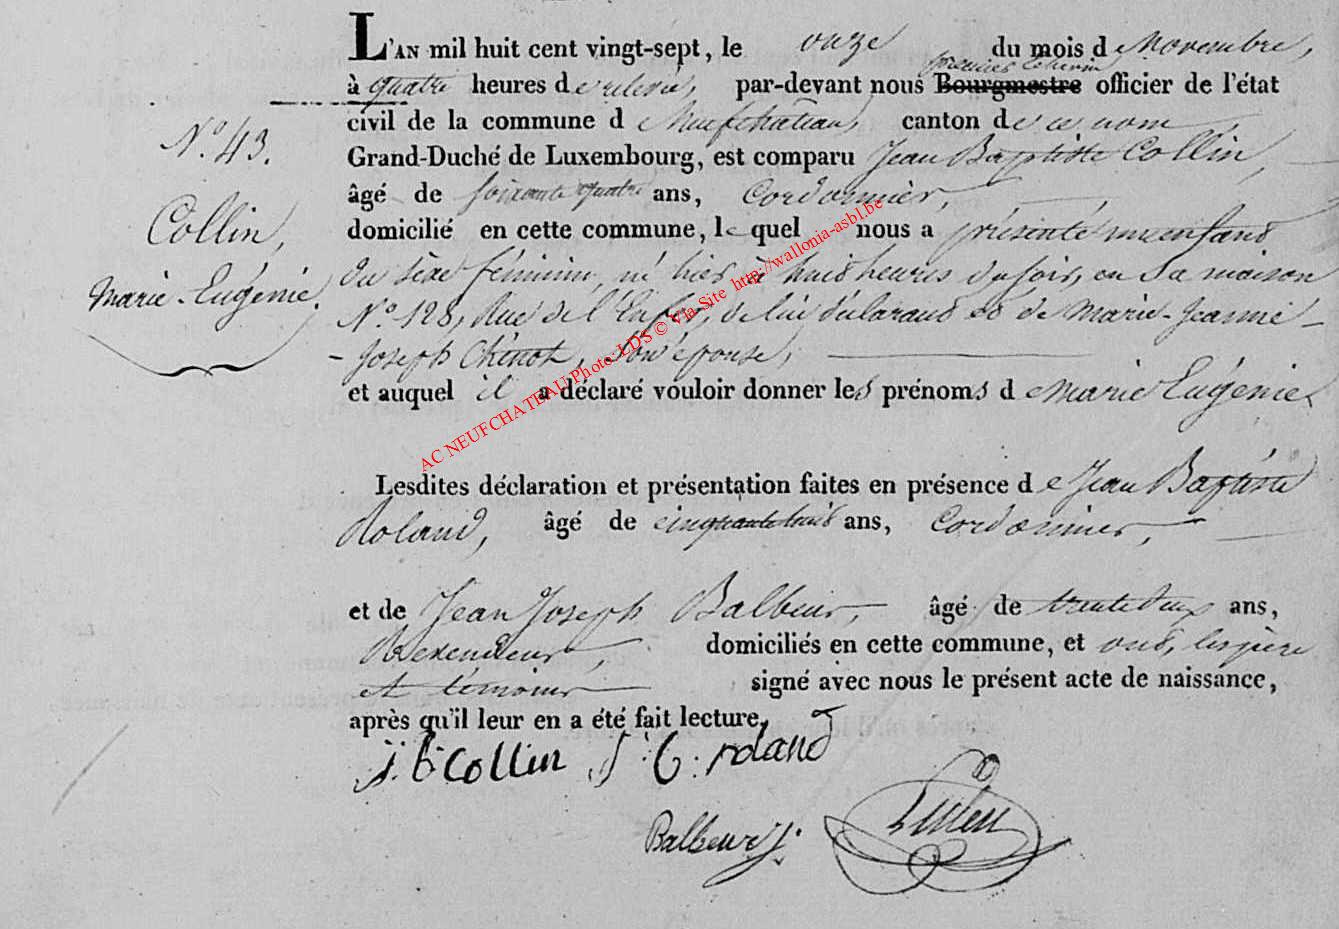 L'AN mil huit cent vingt-sept, le onze du mois de Novembre,
premier Echevin
à quatre heures de relevée, par-devant nous Bourgmestre officier de l'état
civil de la commune de Neufchateau, canton de ce nom,
N.° 43.
Grand-Duché de Luxembourg, est comparu Jean Baptiste Collin,
âgé de soixante quatre ans, Cordonnier,
Collin,
domicilié en cette commune, lequel nous a présenté un enfant
Marie-Eugénie.
du sèxe féminin, né hier à huit heures du soir, en sa maison
N.° 128, Rue de l'Enfer, de lui déclarant et de Marie-Jeanne-
-Joseph Chénot, son épouse,
et auquel il a déclaré vouloir donner les prénoms de Marie Eugénie.
AC NEUFCHATEAU Photo: LDS © Via Site http://wallonia-asbl.be
Lesdites déclaration et présentation faites en présence de Jean Baptiste
Roland, âgé de cinquante huit ans, Cordonnier,
et de Jean Joseph Balbeur, âgé de trente deux ans,
Revendeur, domiciliés en cette commune, et ont, les père
et témoins signé avec nous le présent acte de naissance,
après qu'il leur en a été fait lecture.
J. B Collin J. B. roland
Balbeur J.